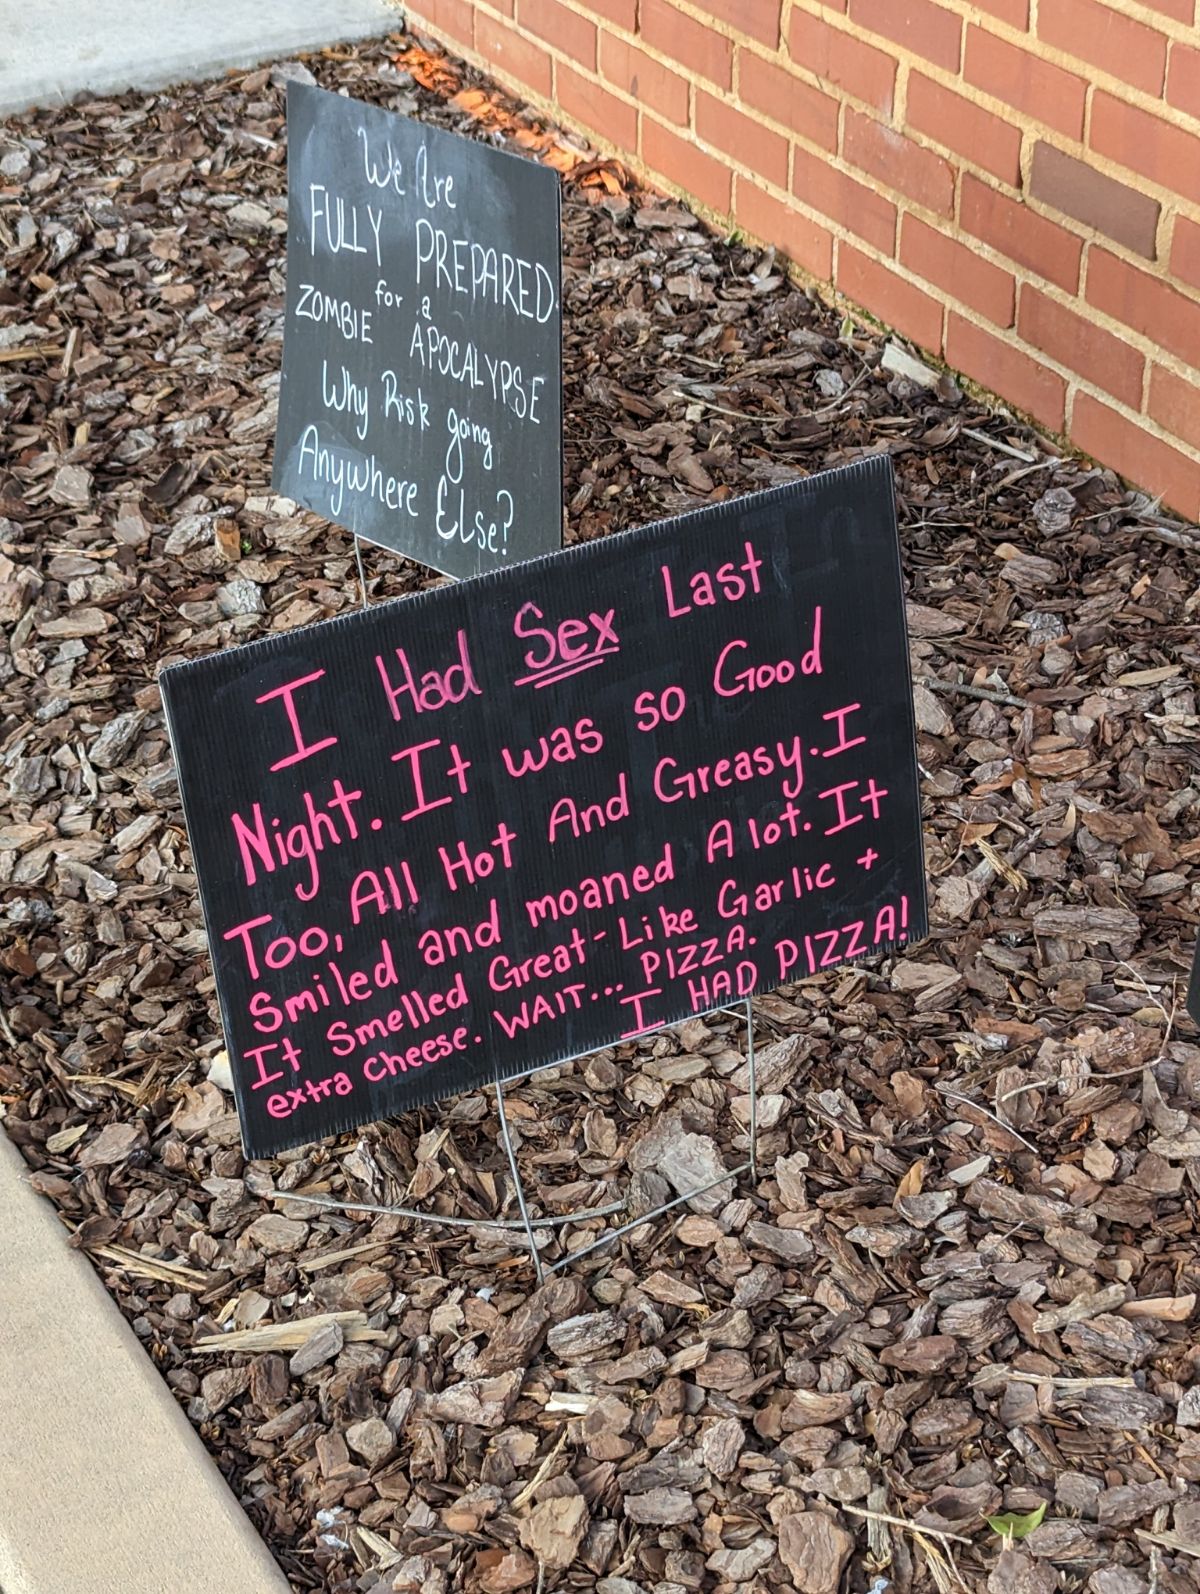 We Are
FULLY PREPARED
for a
ZOMBIE APOCALYPSE
Why Risk going
Anywhere Else?
I Had Sex Last
Night. It was so Good
Too, All Hot And Greasy. I
Smiled and moaned A lot. It
It Smelled Great-Like Garlic +
extra cheese. WAIT... PIZZA.
I HAD PIZZA!